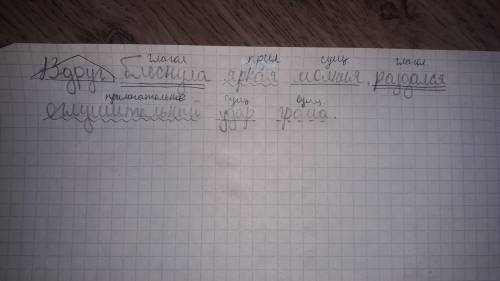 глагол прил сущ глагол
Вдруг блеснула яркая молния, раздался
прилагательное сущ сущ
оглушительный удар грома.